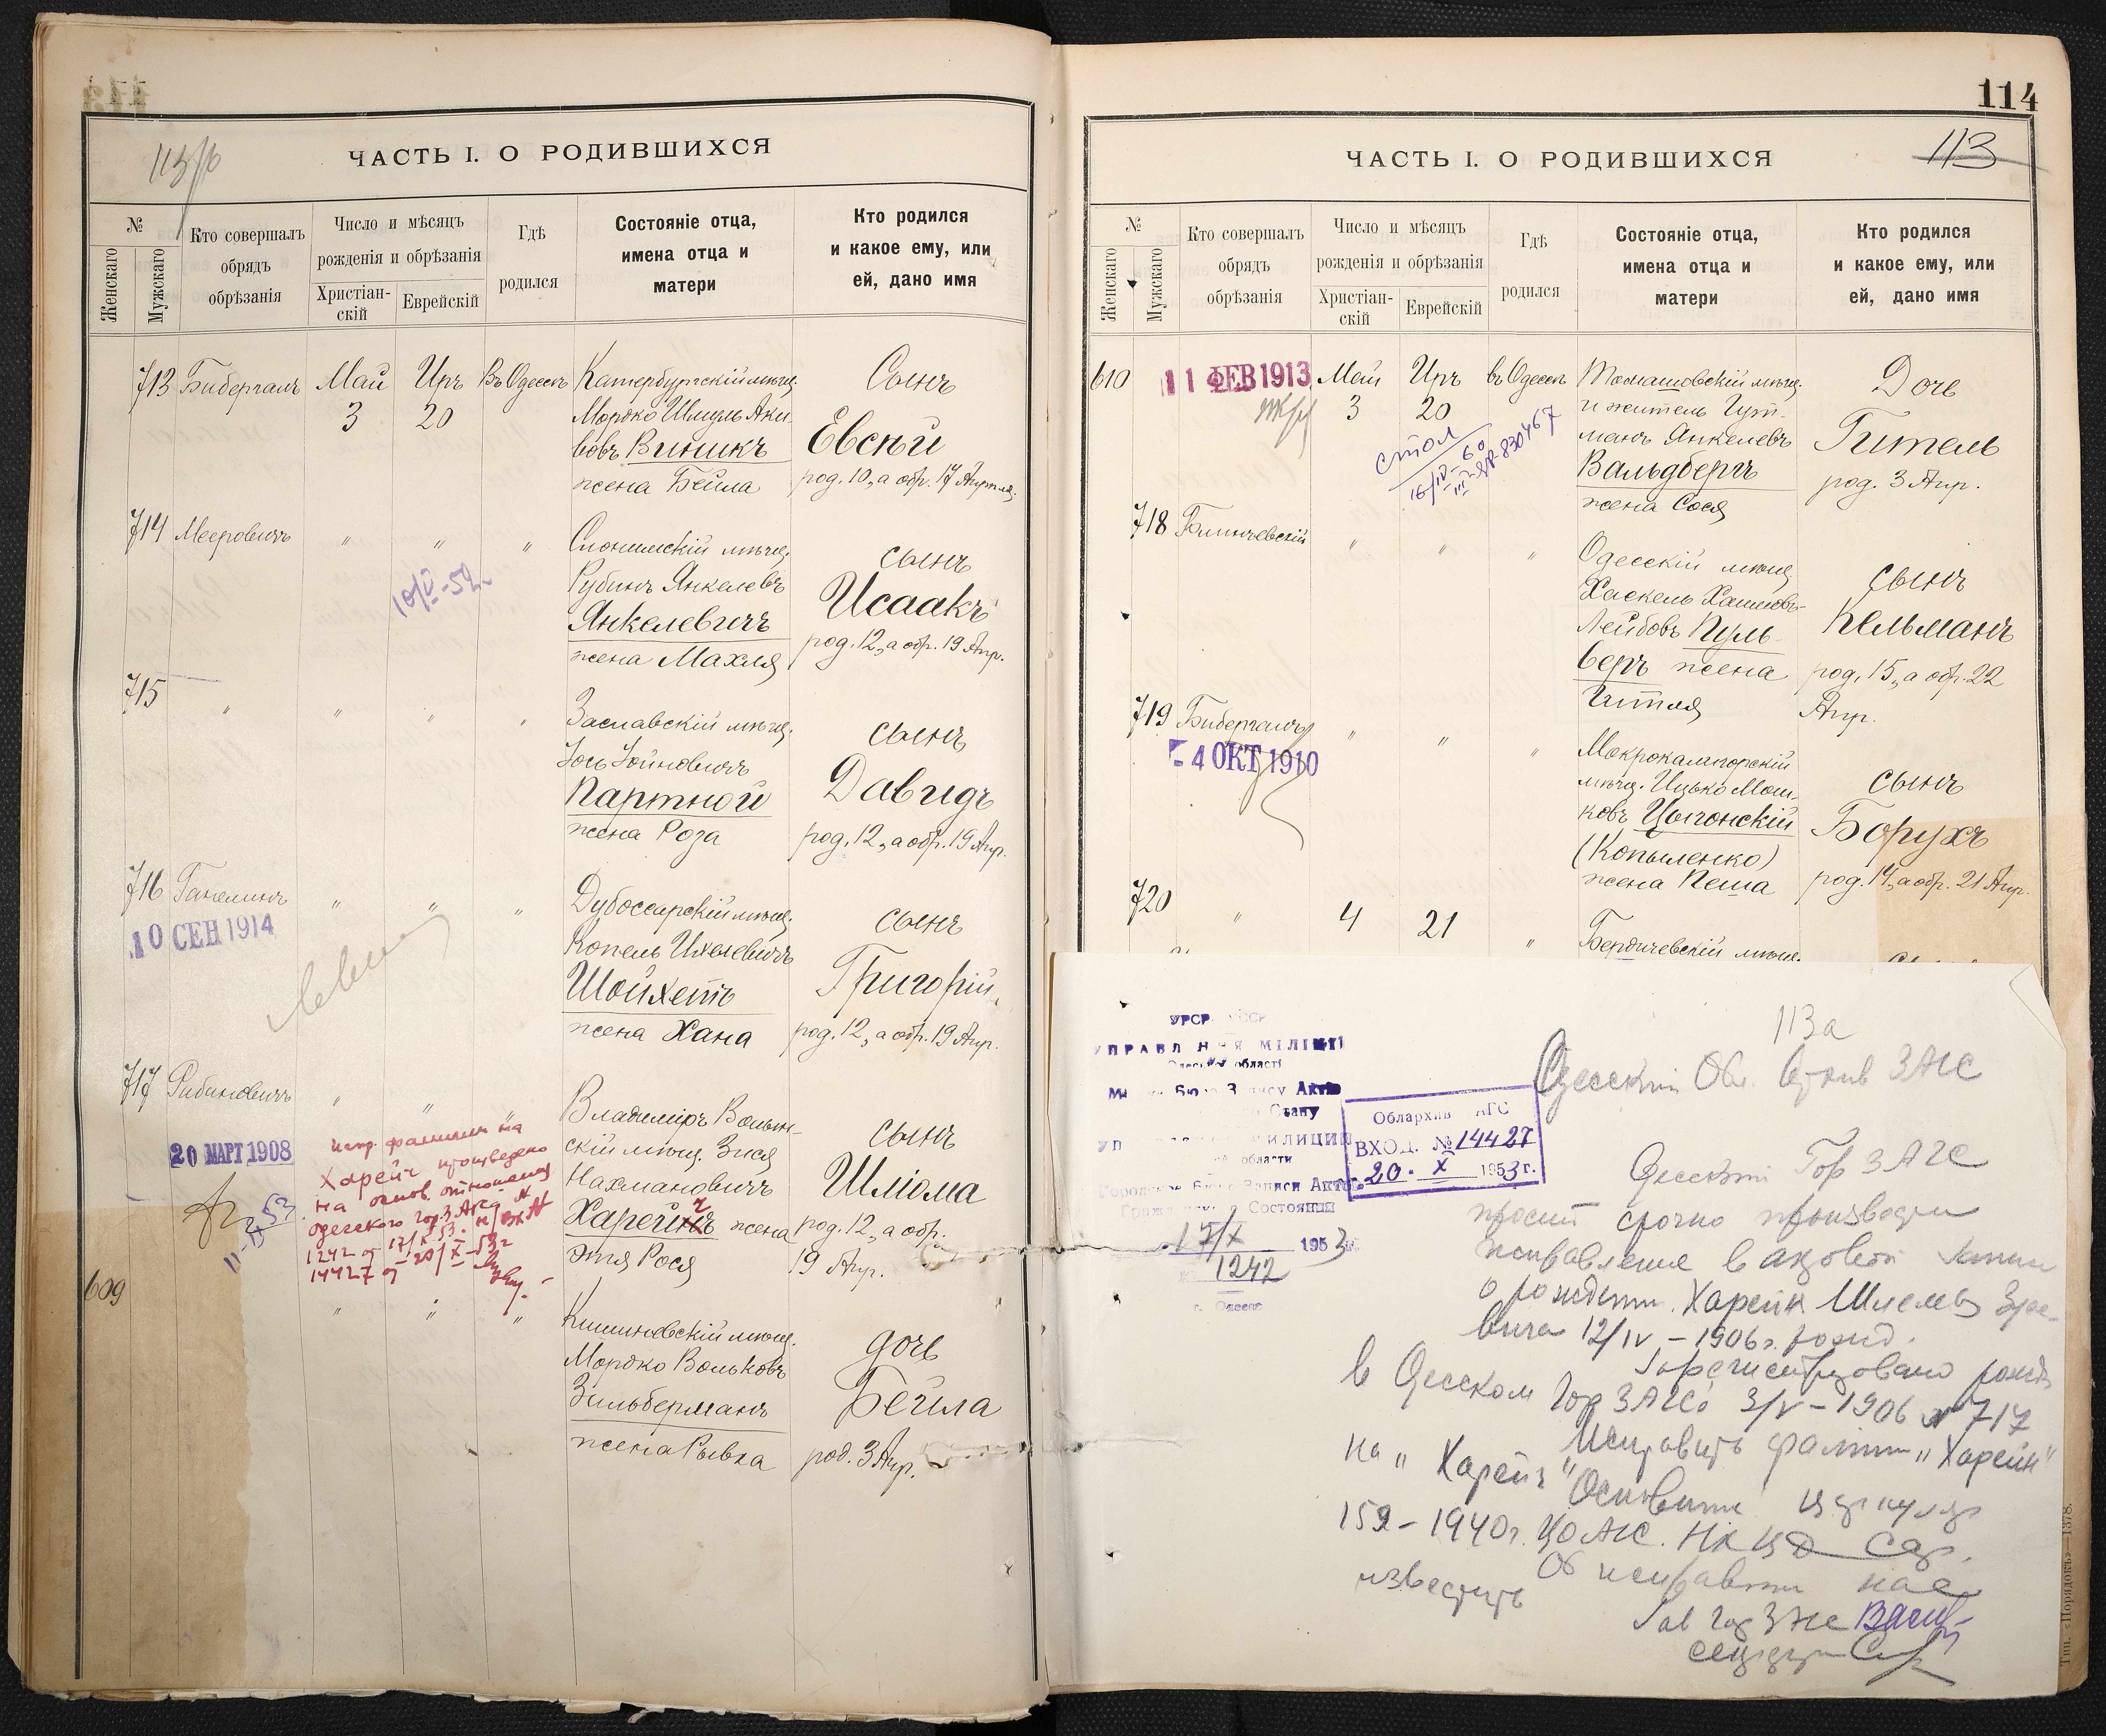 113
113 /б
ЧАСТЬ I. О РОДИВШИХСЯ
№
Женскаго
Мужскаго
Кто совершалъ
обрядъ
обрѣзанія
Число и мѣсяцъ
рожденія и обрѣзанія
Христіан-
скій
Еврейскій
Гдѣ
родился
Состояніе отца,
имена отца и
матери
Кто родился
и какое ему, или
ей, дано имя
713 Бибергалъ Май Иръ Въ Одессѣ Катербургскій мѣщ. Сынъ
3 20 Мордко Шмуль Аки-
вовъ Виникъ Евсѣй
жена Бейла род. 10, а обр. 17 Апрѣля.
714 Мееровичъ " " " Слонимскій мѣщ. сынъ
Рубинъ Янкелевъ Исаакъ
10/V-52.
Янкелевичъ род. 12, а обр. 19 Апр.
жена Махля
715 " " " " Заславскій мѣщ. сынъ
Іось Іойновичъ Давидъ
Партной
жена Роза род. 12, а обр. 19 Апр.
716 Ганелинъ " " " Дубоссарскій мѣщ. сынъ
10 СЕН 1914
Копель Ихелевичъ Григорій
Шойхетъ
жена Хана род. 12, а обр. 19 Апр.
717 Рабиновичъ " " " Владиміръ Волын- сынъ
20 МАРТ 1908
скій мѣщ. Зися Шліома
Нахмановичъ
Харейнъ жена род. 12, а обр.
Этя Рося 19 Апр.
испр. фамилии на
Харейч произведено
на основ. отношения
одесского гор. ЗАГСа №
1242 от 17/X-53. и вх №
14427 от 20/X-53г
609 " " " Кишиневскій мѣщ. дочь
Мордко Вольковъ Бейла
Зильберманъ
жена Рывка род. 3 Апр.
114
113
ЧАСТЬ I. О РОДИВШИХСЯ
№
Женскаго
Мужскаго
Кто совершалъ
обрядъ
обрѣзанія
Число и мѣсяцъ
рожденія и обрѣзанія
Христіан-
скій
Еврейскій
Гдѣ
родился
Состояніе отца,
имена отца и
матери
Кто родился
и какое ему, или
ей, дано имя
610 11 ФЕВ 1913 Май Иръ въ Одессѣ Томашовскій мѣщ. Дочь
3 20 и житель Гут-
манъ Янкелевъ Гитель
Вальдбергъ род. 3 Апр.
жена Сося
стол
16/IV-60
III-ЯР-830467
718 " " " Одесскій мѣщ. сынъ
Хаскель Хаимовъ-
Лейбовъ Пуль- Кельманъ
веръ жена род. 15, а обр. 22
Гитля Апр.
719 Бибергалъ " " " Мокрокалигорскій сынъ
4 ОКТ 1910
мѣщ. Ицько Мош-
ковъ Цыгонскій Борухъ
(Копыленко)
жена Пеша род. 14, а обр. 21 Апр.
720 " 4 21 " Бердичевскій мѣщ.
УРСР
УПРАВЛ НЯ МІЛІЦІЇ
області
Бюро З пису Актів
Стану
МИЛИЦИИ
области
Городское Бюро Записи Актов
Состояния
17/X 1953г.
№ 1242
г. Одесса
Облархив АГС
ВХОД. №14427
20. X 1953г.
113а
Одесский Обл. Архив ЗАГС
Одесский Гор ЗАГС
просит срочно произвести
исправление в актовой записи
о рождении. Харейн Шлемы Зусе-
вича 12/IV-1906г. рожд.
Зарегистрировано рожд
в Одесском Гор ЗАГСе 3/V-1906 № 717
Исправить фамилию „Харейн"
на „Харейч" Основание циркуляр
159-1940г. ЦОАГС. НКВД
Об исправлении нас
известить
Зав Гор ЗАГС
Тип. «Порядокъ»—1378.